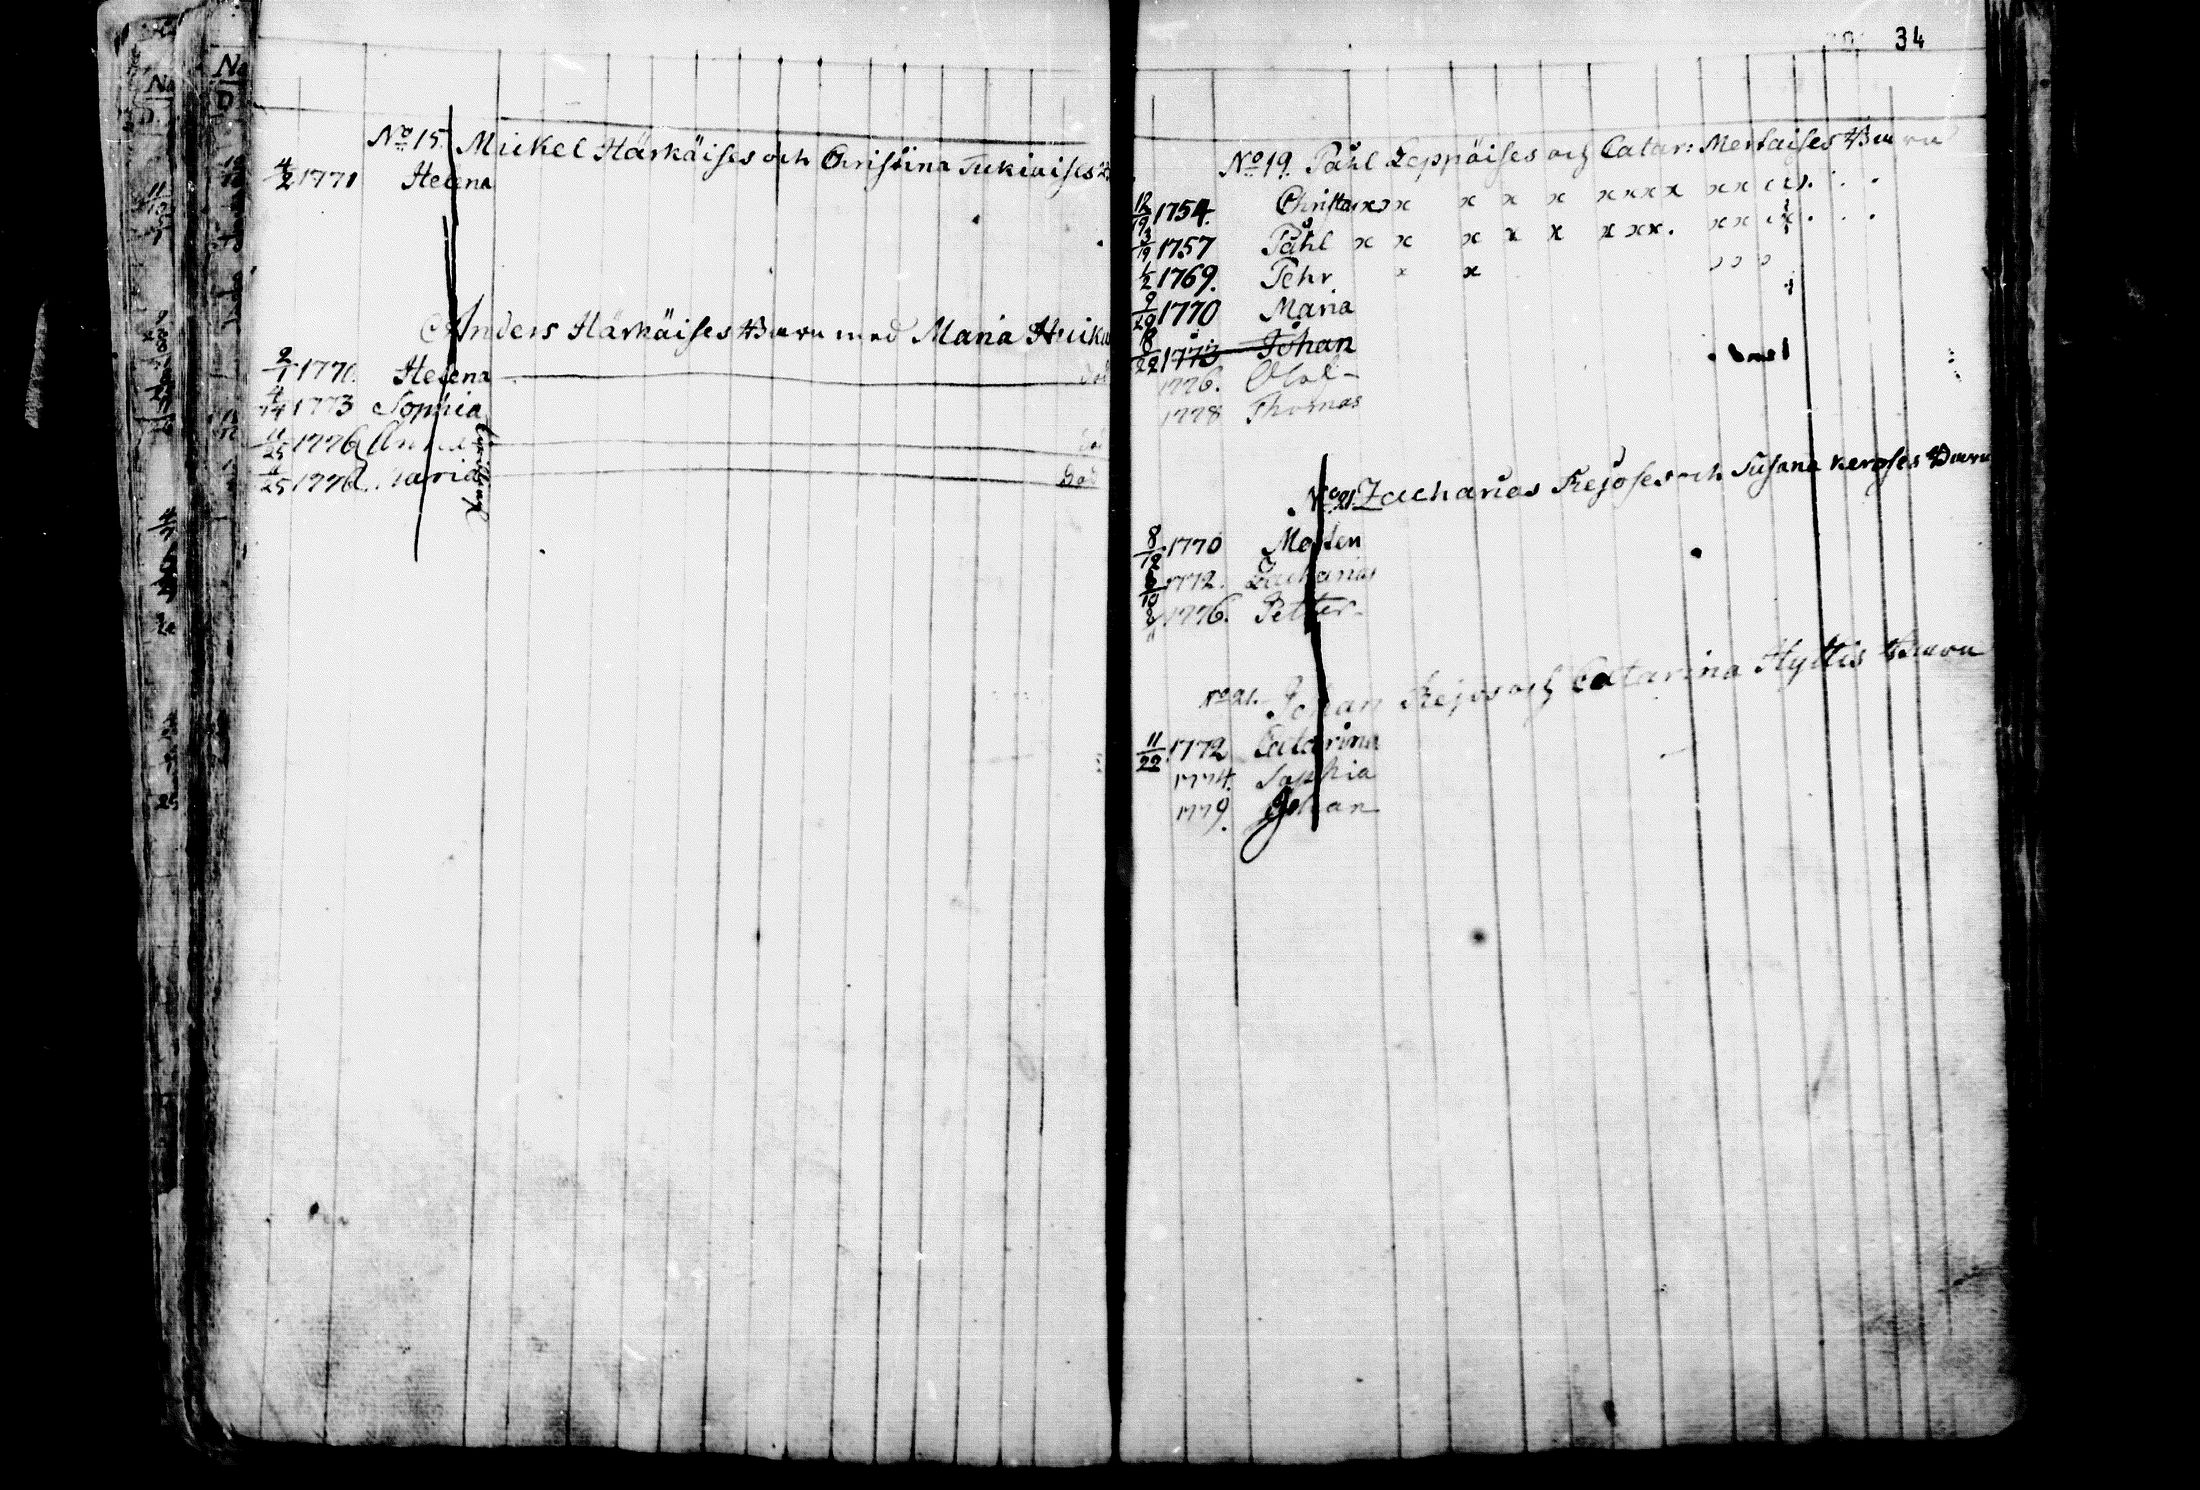 34
No 15. Mickel Härkäises och Christina Tukiaises
4/2 1771 Helena
Anders Härkäises Barn med Maria
2/1 1770. Helena död
4/14 1773 Sophia
11/25 1776 Anna
11/25 1776 Maria död
No 19. Påhl Leppäises och Catar: Mertaises Barn
12/19 1754. x x x x x x x x x x x
3/19 1757 Påhl x x x x x x x x. x x
1/2 1769. Pehr x x
9/29 1770 Maria
8/22 1773 Johan
1776. Olof
1778 Thomas
No 21. Zacharias Kejoses och Susana Barn
8/12 1770 Morten
6/10 1772. Zacharias
8/11 1776. Petter
No 21. Johan Kejos och Catarina Hyttis Barn
11/22 1772 Catarina
1774. Sophia
1779. Johan